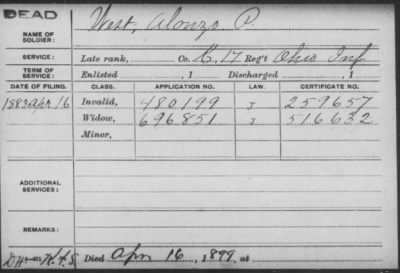 DEAD
NAME OF SOLDIER: West, Alonzo P.
SERVICE: Late rank, Co. K, 17 Reg't Ohio Inf
TERM OF SERVICE: Enlisted , 1 Discharged , 1
DATE OF FILING. CLASS. APPLICATION NO. LAW. CERTIFICATE NO.
1883 Apr 16 Invalid, 480199 J 259657
Widow, 696851 J 516632
Minor,
ADDITIONAL SERVICES:
REMARKS:
Died Apr 16, 1899. at